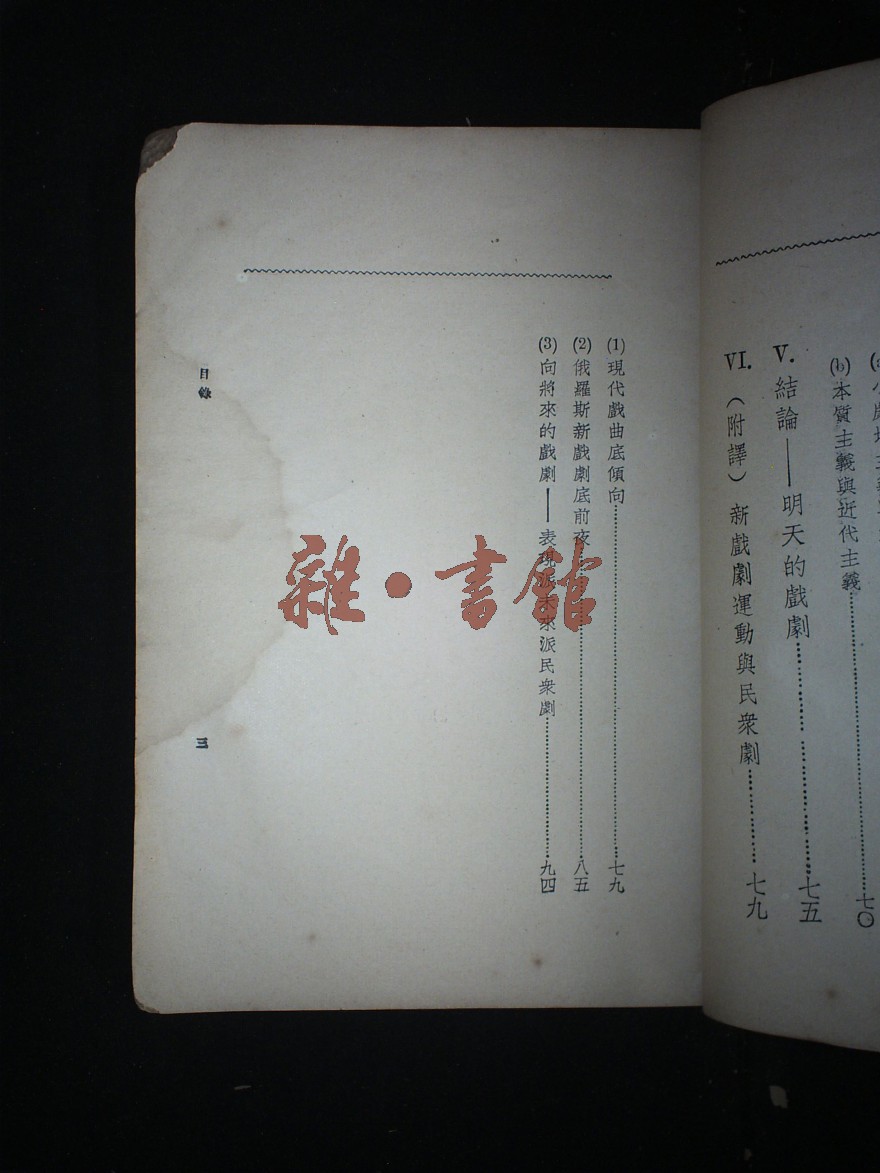 (b)本質主義與近代主義……七〇
V. 結論——明天的戲劇……七五
VI. (附譯)新戲劇運動與民衆劇……七九
(1)現代戲曲底傾向……七九
(2)俄羅斯新戲劇底前夜……八五
(3)向將來的戲劇——表現派未來派民衆劇……九四
目錄
三
雜·書館